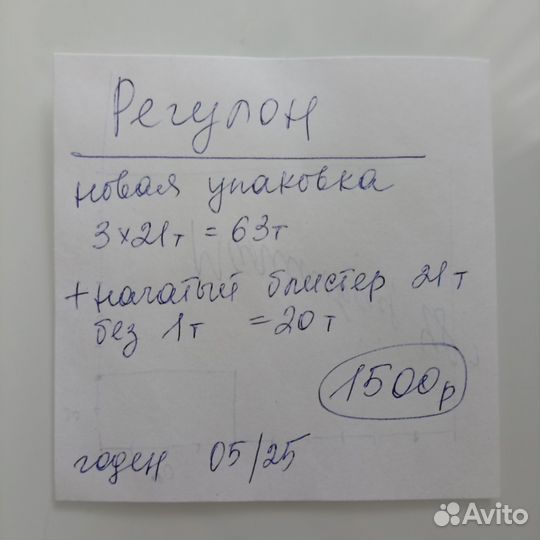 Регулон
новая упаковка
3×21т = 63т
+ начатый блистер 21т
без 1т = 20т
1500р
годен 05/25
Avito